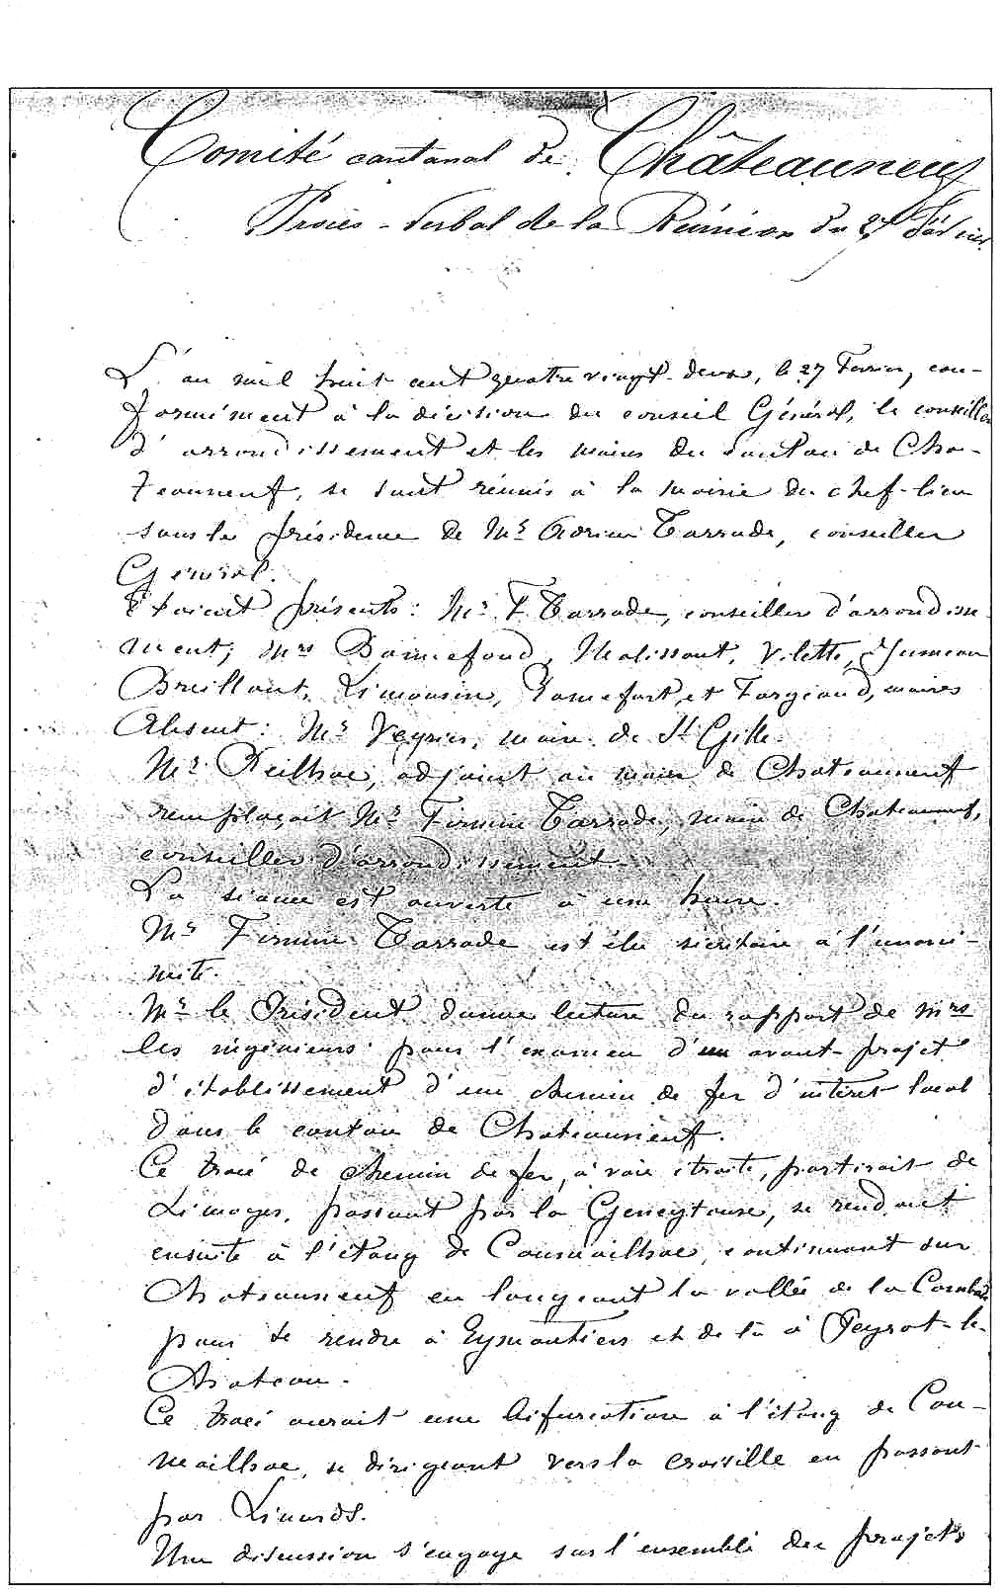 Comité cantonal de Châteauneuf
Procès-Verbal de la Réunion du 27 Février
L'an mil huit cent quatre vingt-deux, le 27 Février, con-
formément à la décision du conseil Général, le conseiller
d'arrondissement et les maires du canton de Cha-
teauneuf, se sont réunis à la mairie du chef-lieu
sous la présidence de Mr Adrien Tarrade, conseiller
Général.
Etaient présents: Mr F Tarrade, conseiller d'arrondisse
ment; Mrs Bonnefond, Malissout, Vilette,
Breillout, Limousin, et Fargeaud, maires
Absent: Mr Veyrier, maire de St Gille.
Mr Reilhac, adjoint au maire de Chateauneuf
remplaçait Mr Firmin Tarrade, maire de Chateauneuf,
conseiller d'arrondissement.
La séance est ouverte à une heure.
Mr Firmin Tarrade est élu sécrétaire à l'unani-
mité.
Mr le Président donne lecture du rapport de Mrs
les ingénieurs pour l'examen d'un avant-projet
d'établissement d'un chemin de fer d'intérêt local
dans le canton de Chateauneuf.
Ce tracé de chemin de fer, à voie étroite, partirait de
Limoges, passant par la Geneytouse, se rendant
ensuite à l'étang de Coumailhac, continuant sur
Chateauneuf en longeant la vallée de la Combade
pour se rendre à Eymoutiers et de là à Peyrat-le-
Chateau.
Ce tracé aurait une bifurcation à l'étang de Cou-
mailhac, se dirigeant vers la croisille en passant
par Linards.
Une discussion s'engage sur l'ensemble des projets